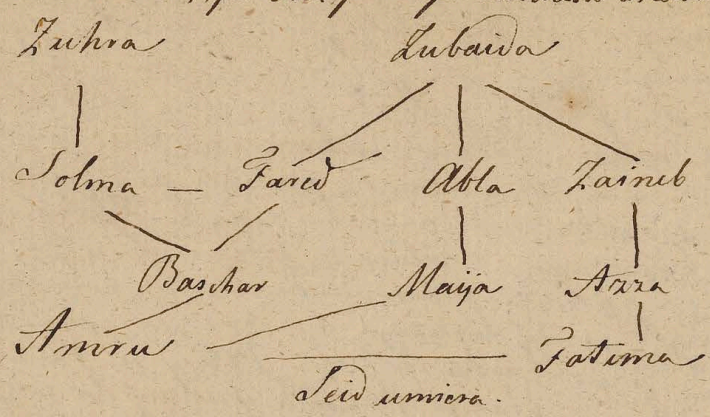 Zuhra Zubaida
Solma — Fared Abla Zaineb
Baschar Maija Azza
Amru Fatima
Seid umiera.